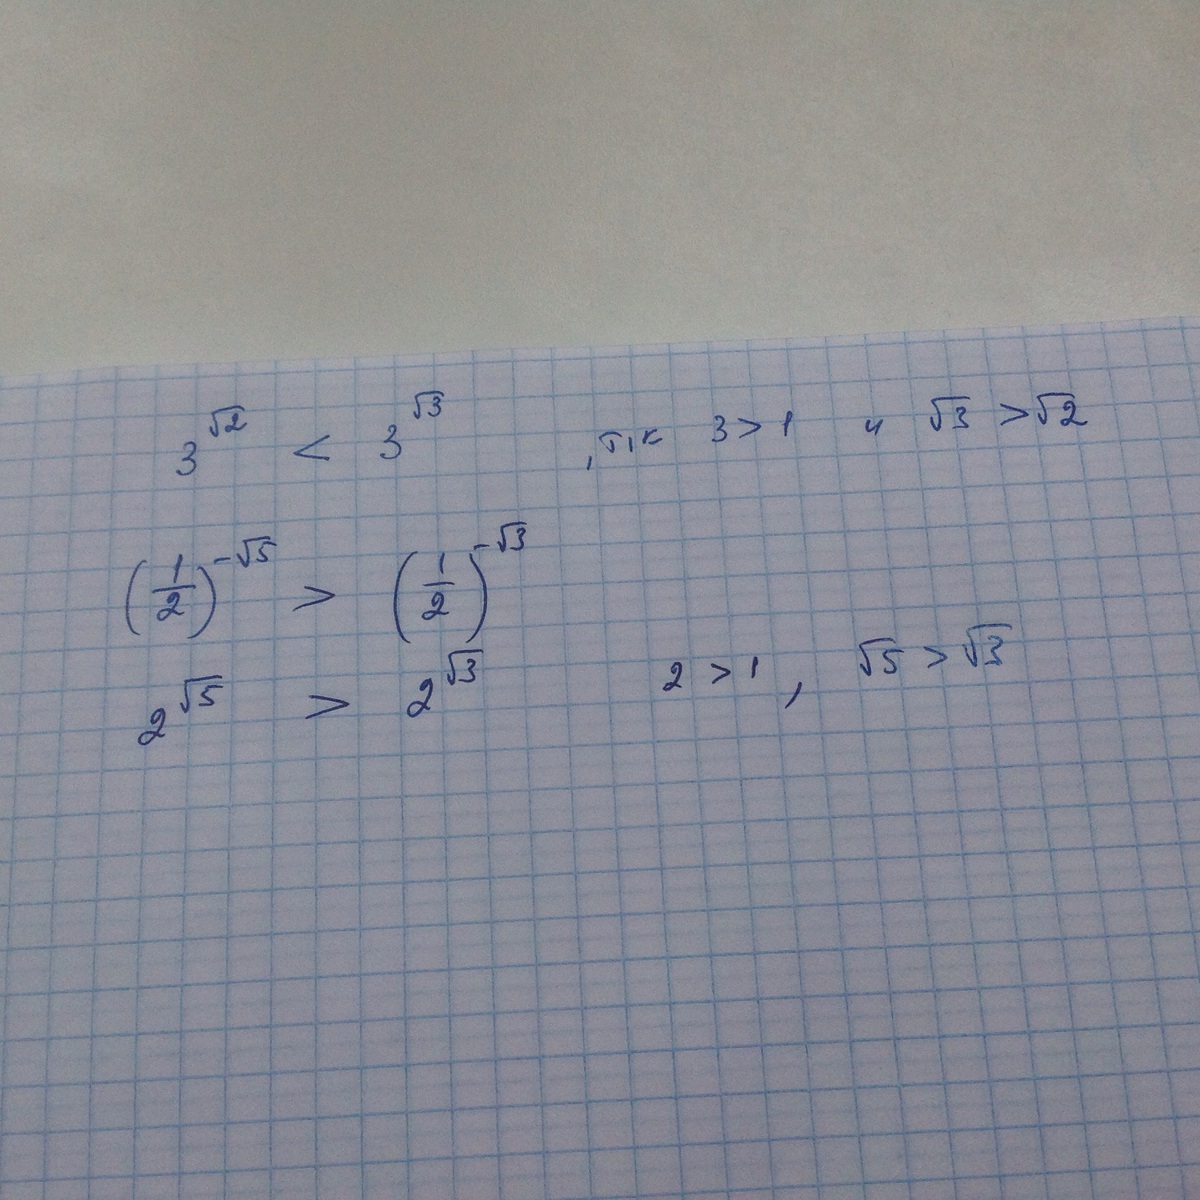 3^√2 < 3^√3 , т,к 3 > 1 и √3 > √2
(1/2)^-√5 > (1/2)^-√3
2^√5 > 2^√3 2 > 1 , √5 > √3